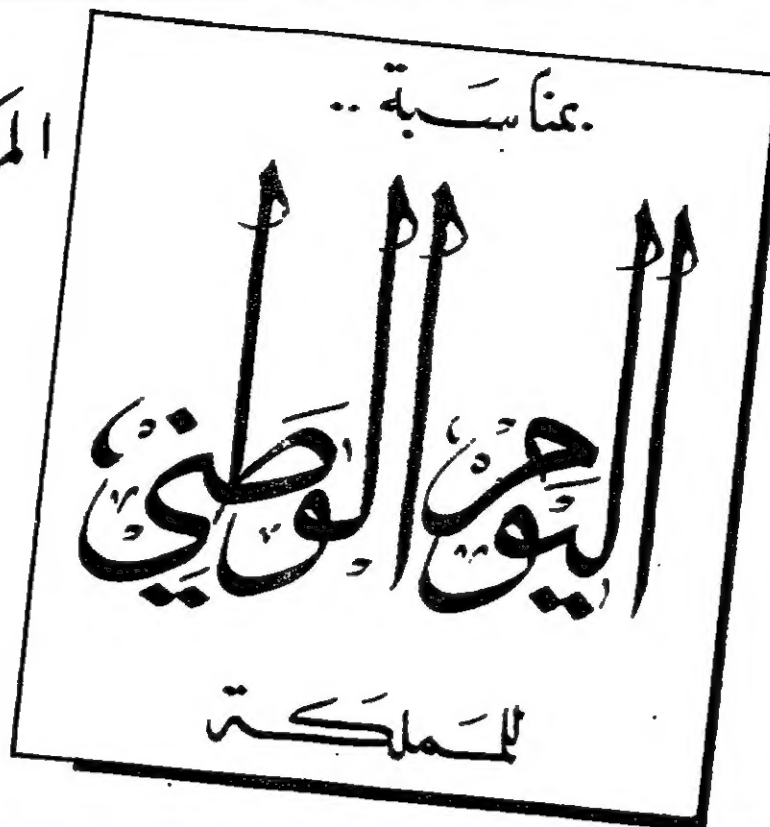 بمناسَبة ..
اليوم الوطني
للمَملكَة